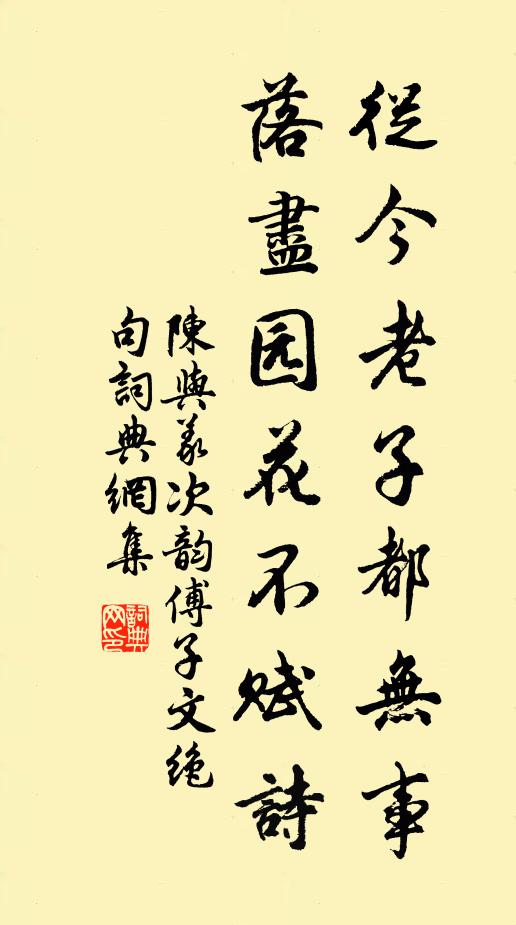 從今老子都無事
落盡园花不赋詩
陳與義次韵傅子文绝
句詞典網集
詞典
网印